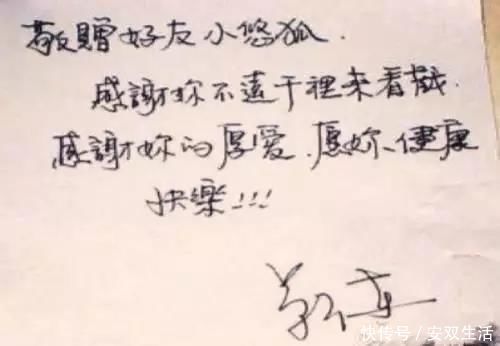 敬贈好友小悠狐.
感謝妳不遠千裡来看戲.
感謝妳的厚爱.愿妳健康
快樂!!!
快传号/安双生活